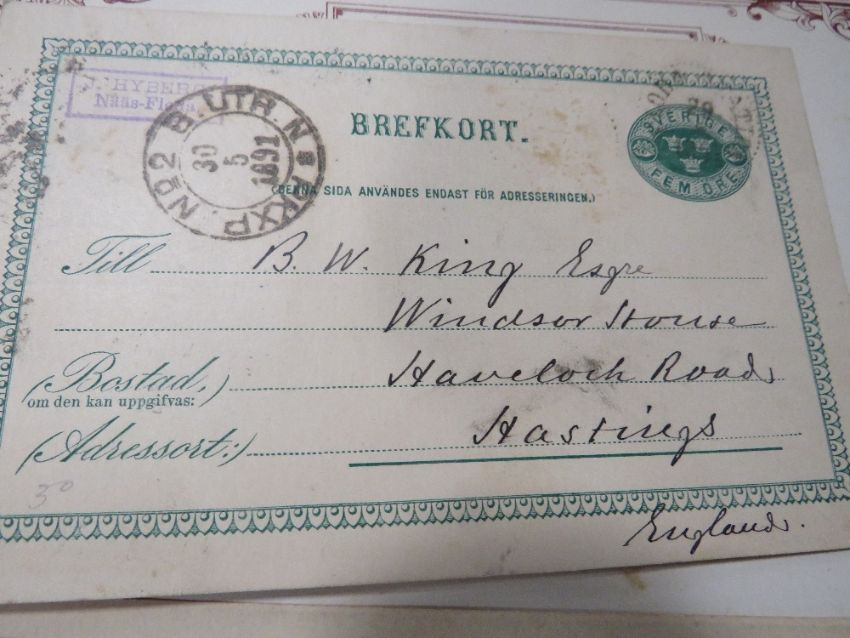 HYBERG
Nääs-Floda
No 2 B.UTR. N PKXP.
30
5
1891
BREFKORT.
(DENNA SIDA ANVÄNDES ENDAST FÖR ADRESSERINGEN.)
SVERIGE
FEM ÖRE
Till B. W. King Esqre
Windsor House
(Bostad,) Havelock Road
om den kan uppgifvas:
(Adressort:) Hastings
England.
30